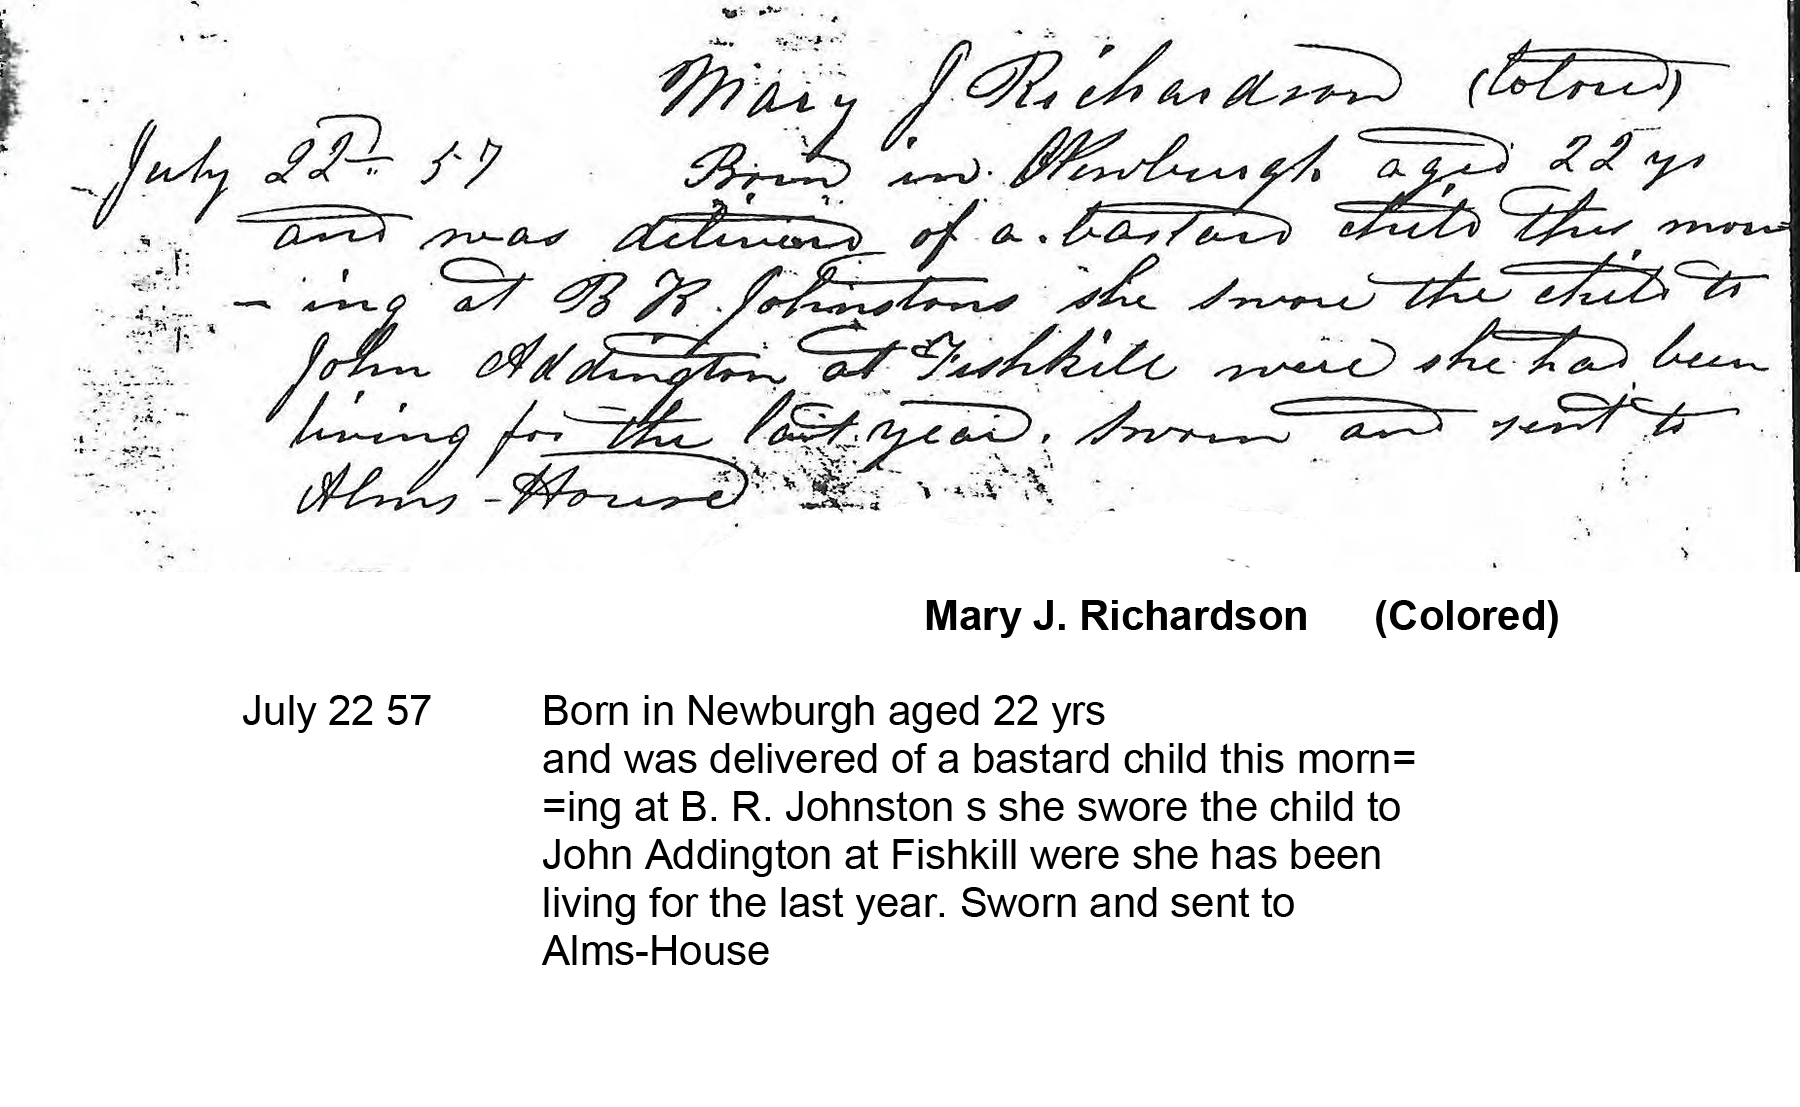 Mary J Richardson (Colored)
July 22nd 57 Born in Newburgh aged 22 yrs
and was delivered of a bastard child this morn=
- ing at B R Johnstons she swore the child to
John Addington at Fishkill were she had been
living for the last year. Sworn and sent to
Alms-House
Mary J. Richardson (Colored)
July 22 57 Born in Newburgh aged 22 yrs
and was delivered of a bastard child this morn=
=ing at B. R. Johnston s she swore the child to
John Addington at Fishkill were she has been
living for the last year. Sworn and sent to
Alms-House